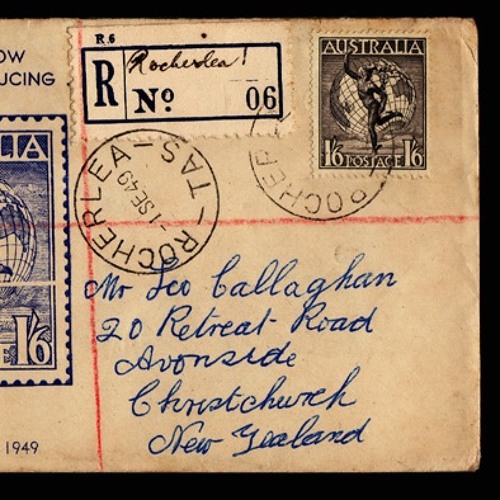 OW
UCING
R.6
R
Rocherlea!
Nº 06
AUSTRALIA
1/6 POSTAGE 1/6
ROCHERLEA – TAS –
-1 SE 49
ROCHER
LIA
1/6
1949
Mr Leo Callaghan
20 Retreat Road
Avonside
Christchurch
New Zealand